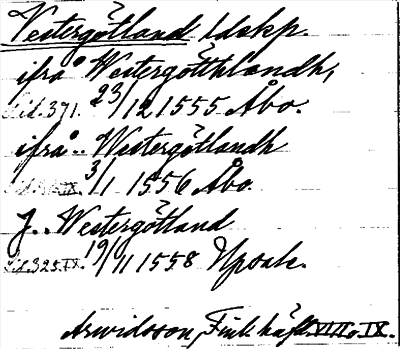 Vestergötland ldskp.
ifrå Westergötthlandh,
Sid. 371. 23/12 1555 Åbo.
ifrå.. Westergötlandh
3/1 1556 Åbo
J.. Westergötland
Sid. 325.IX. 19/11 1558 Upsale.
Arwidsson, Finl. häft. VIII o. IX.